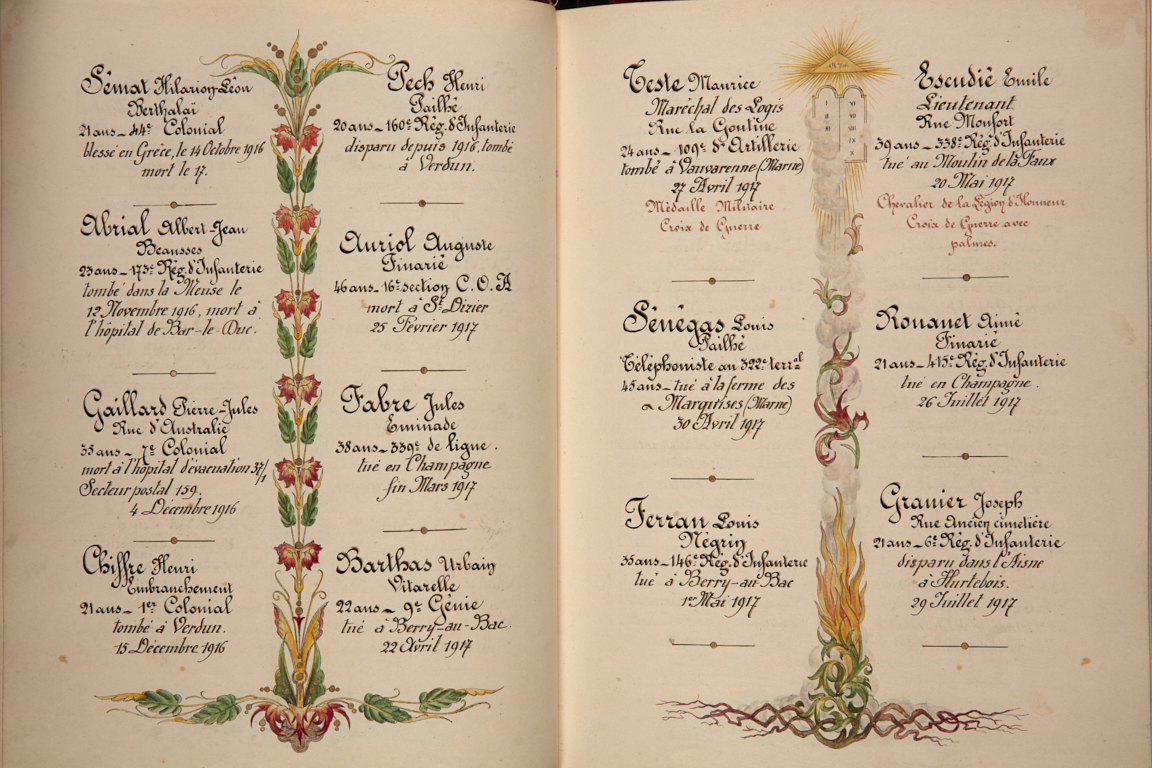 Sémat Hilarion-Léon
Berthalaï
21 ans _ 44e Colonial
blessé en Grèce, le 14 Octobre 1916
mort le 17.
Abrial Albert-Jean
Beausses
23 ans _ 173e Rég. d'Infanterie
tombé dans la Meuse le
12 Novembre 1916, mort à
l'hôpital de Bar-le-Duc.
Gaillard Pierre-Jules
Rue d'Australie
35 ans _ 7e Colonial
mort à l'hôpital d'évacuation 37/1
Secteur postal 159.
4 Décembre 1916
Chiffre Henri
Embranchement
21 ans _ 1er Colonial
tombé à Verdun.
15 Décembre 1916
Pech Henri
Pailhé
20 ans _ 160e Rég. d'Infanterie
disparu depuis 1916, tombé
à Verdun.
Auriol Auguste
Finarié
46 ans _ 16e section C.O.A
mort à St Dizier
25 Février 1917
Fabre Jules
Eminade
38 ans _ 339e de ligne.
tué en Champagne
fin Mars 1917
Barthas Urbain
Vitarelle
22 ans _ 9e Génie
tué à Berry-au-Bac.
22 Avril 1917
Teste Maurice
Maréchal des Logis
Rue la Goutine
24 ans _ 109e d'Artillerie
tombé à Vauvarenne (Marne)
27 Avril 1917
Médaille Militaire
Croix de Guerre
Sénégas Louis
Pailhé
Téléphoniste au 322e terral
45 ans _ tué à la ferme des
Marquises (Marne)
30 Avril 1917
Ferran Louis
Négrin
35 ans _ 146e Rég. d'Infanterie
tué à Berry-au-Bac
1er Mai 1917
I VI
II VII
III VIII
IX
X
Escudié Emile
Lieutenant
Rue Monfort
39 ans _ 338e Rég. d'Infanterie
tué au Moulin de la Faux
20 Mai 1917
Chevalier de la Légion d'Honneur
Croix de Guerre avec
palmes.
Rouanet Aimé
Finarié
21 ans _ 415e Rég. d'Infanterie
tué en Champagne.
26 Juillet 1917
Granier Joseph
Rue Ancien cimetière
21 ans _ 6e Rég. d'Infanterie
disparu dans l'Aisne
à Hurtebois.
29 Juillet 1917